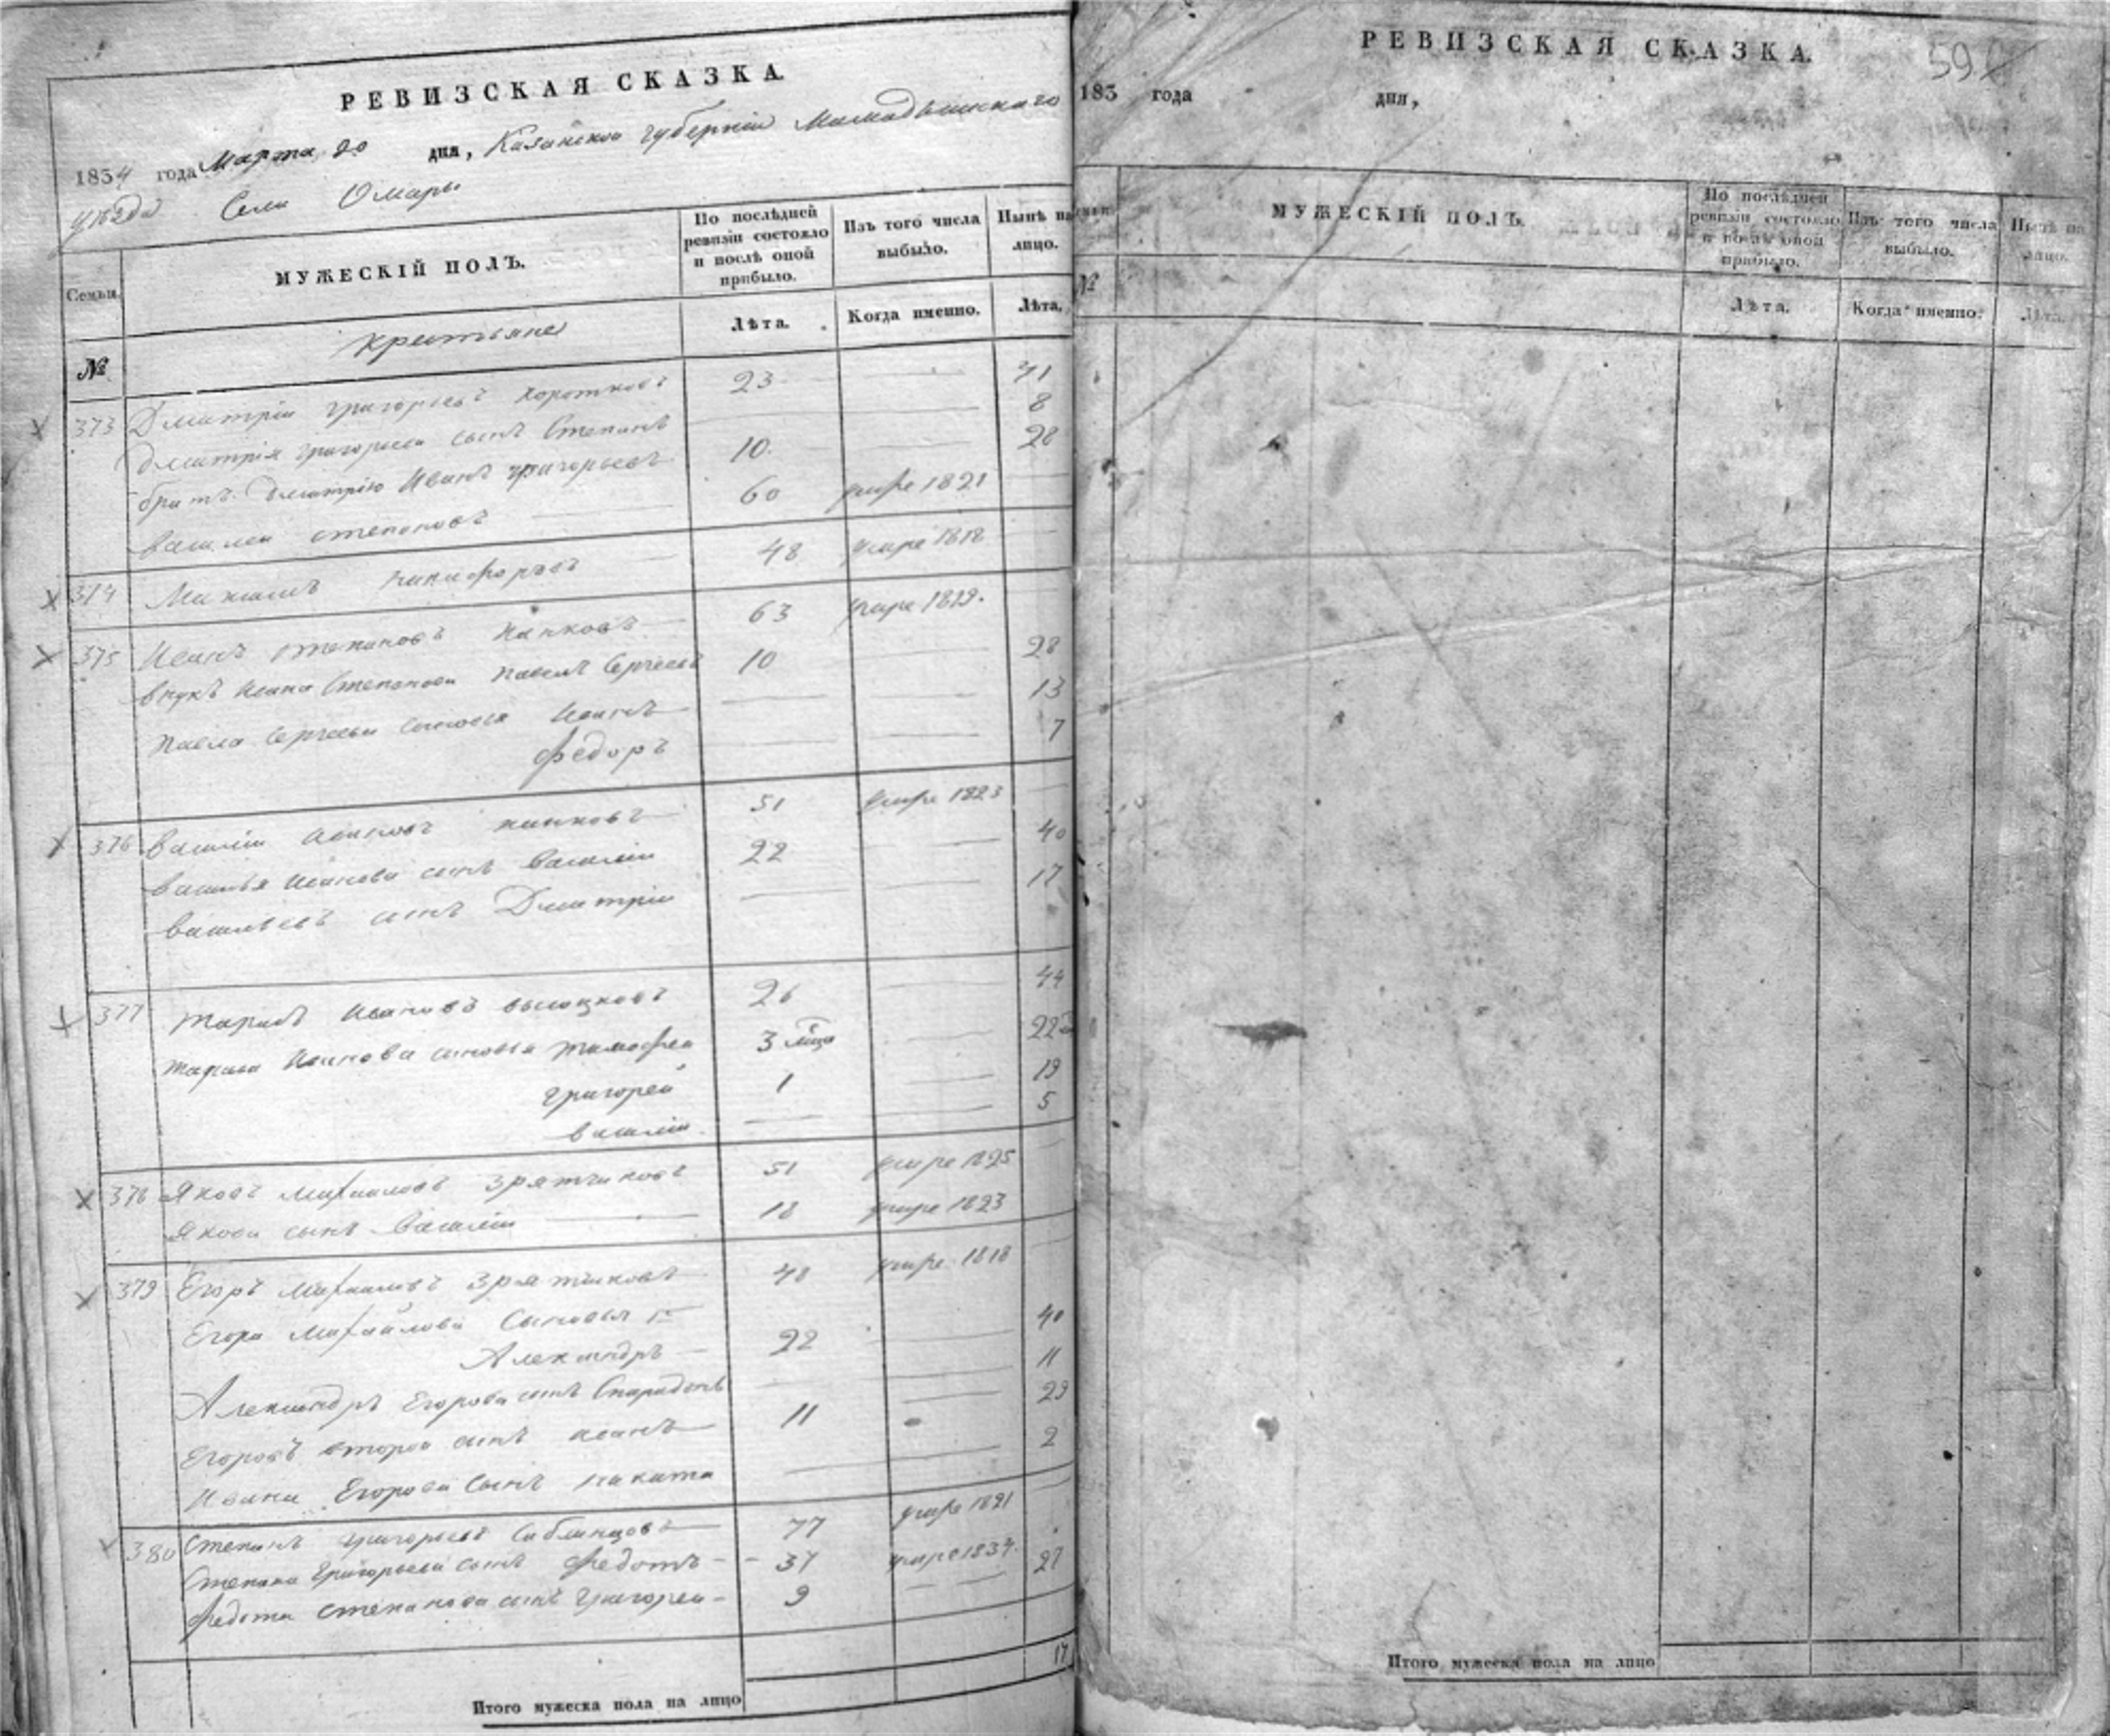 РЕВИЗСКАЯ СКАЗКА.
1834 года Марта 20 дня, Казанской губернии Мамадышскаго
уезда Села Омары
Семьи.
МУЖЕСКІЙ ПОЛЪ.
По послѣдней ревизіи состояло и послѣ оной прибыло.
Изъ того числа выбыло.
Нынѣ на лицо.
№
крестьяне
Лѣта.
Когда именно.
Лѣта.
373 Дмитріи григорьевъ коротковъ 23 41
Дмитрія григорьева сынъ Степанъ 8
братъ Дмитрію Иванъ григорьевъ 10 28
Василеи степановъ 60 умре 1821
374 Никифоровъ 48 умре 1818
375 Иванъ степановъ 63 умре 1819.
внукъ Ивана Степанова Павелъ Сергеевъ 10 28
Павла Сергеева сыновья Иванъ 13
Федоръ 7
376 Василіи Ивановъ 51 умре 1823
Василья Иванова сынъ Василіи 22 40
Васильевъ сынъ Дмитріи 17
377 Тарасъ Ивановъ 26 44
Тараса Иванова сыновья Тимофеи 3 22
григореи 1 19
Василіи 5
378 Яковъ Михаиловъ Зрятчиковъ 51 умре 1825
Якова сынъ Василіи 18 умре 1823
379 Егоръ Михаиловъ Зрятчиковъ 48 умре 1818
Егора Михайлова Сыновья 1й
Александръ 22 40
Александръ Егорова сынъ Спиридонъ 11
Егоровъ второи сынъ Иванъ 11 29
Ивана Егорова Сынъ Никита 2
380 Степанъ григорьевъ Саблинцовъ 77 умре 1821
Степана Григорьева сынъ Федотъ 37 умре 1834
Федота степанова сынъ Григореи 9 27
17
Итого мужеска пола на лицо
РЕВИЗСКАЯ СКАЗКА.
59
183 года дня,
МУЖЕСКІЙ ПОЛЪ.
По послѣдней ревизіи состояло и послѣ оной прибыло.
Изъ того числа выбыло.
Нынѣ на лицо.
№
Лѣта.
Когда именно.
Лѣта.
Итого мужеска пола на лицо